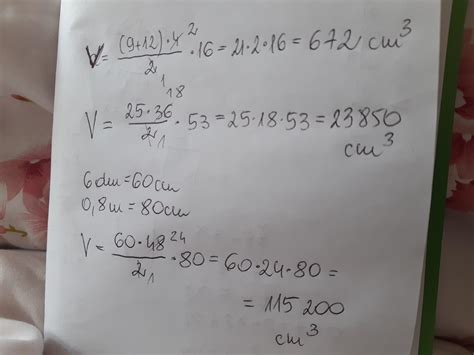 V = (9+12)·4² / 2₁ ·16 = 21·2·16 = 672 cm³
V = 25·36¹⁸ / 2₁ · 53 = 25·18·53 = 23850
cm³
6dm=60cm
0,8m=80cm
V = 60·48²⁴ / 2₁ ·80 = 60·24·80 =
= 115 200
cm³